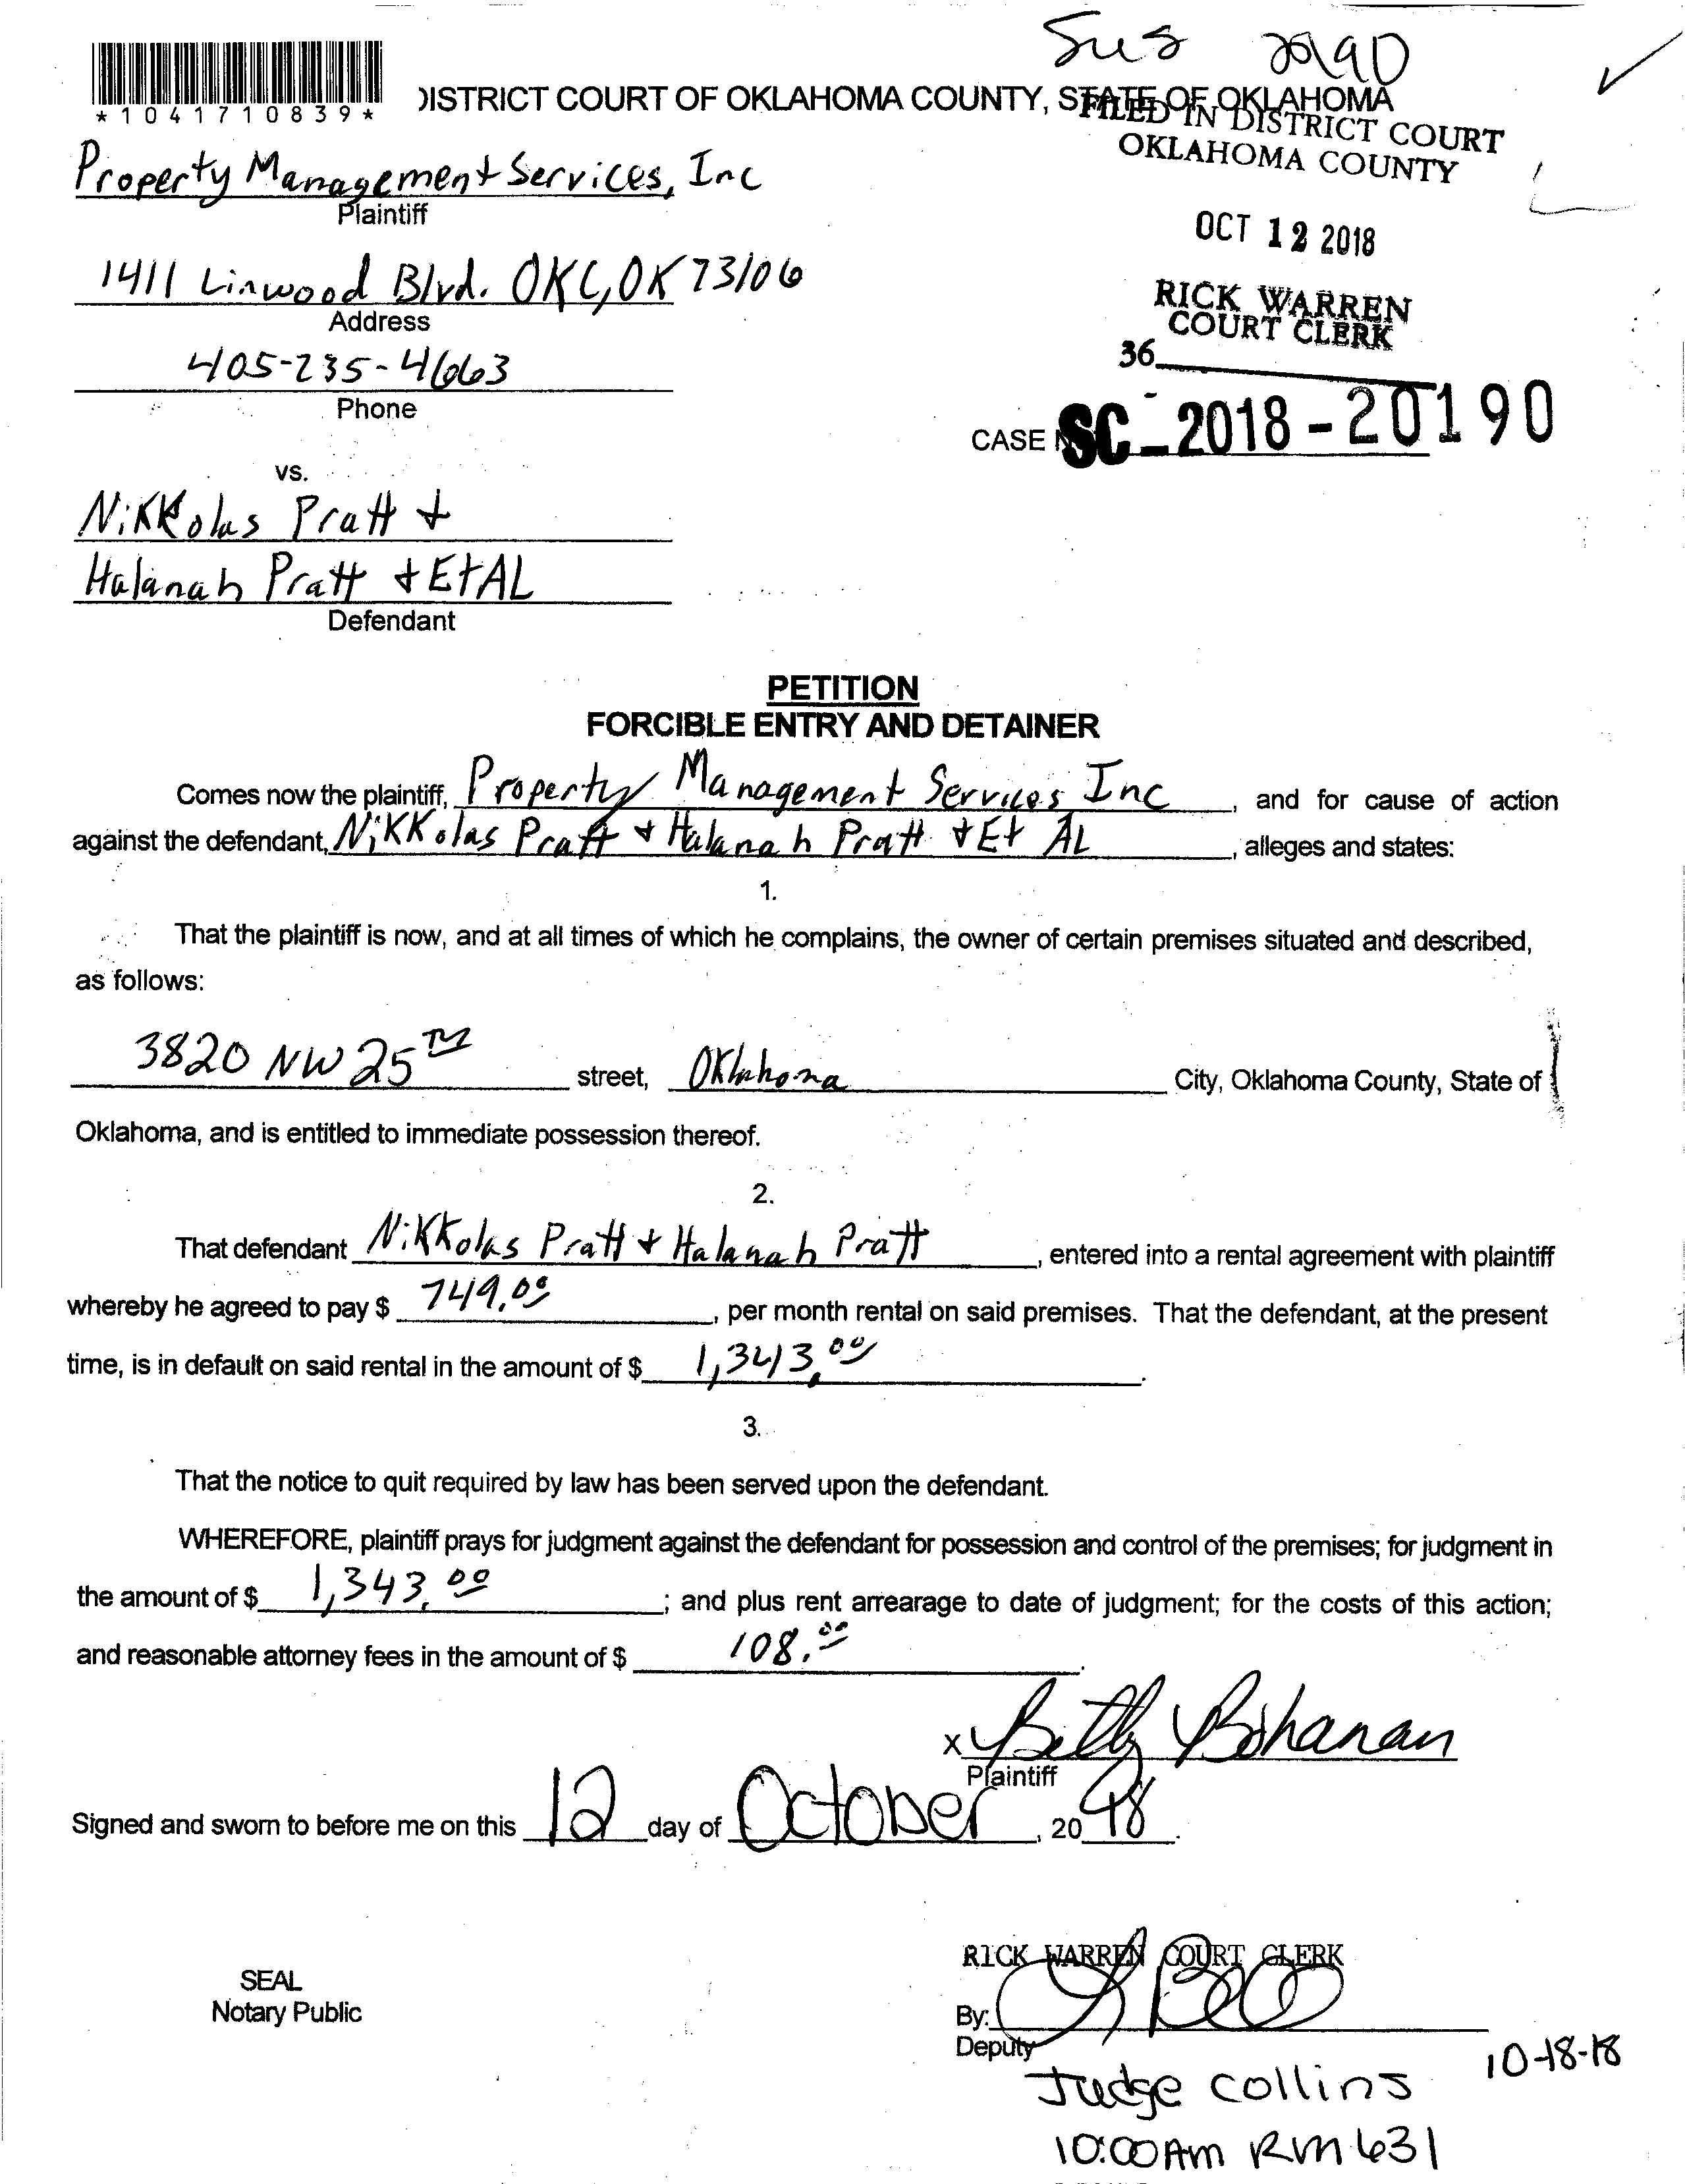 Sus 20190
*1041710839*
DISTRICT COURT OF OKLAHOMA COUNTY, STATE OF OKLAHOMA
FILED IN DISTRICT COURT
OKLAHOMA COUNTY
Property Management Services, Inc
Plaintiff
OCT 12 2018
1411 Linwood Blvd. OKC, OK 73106
Address
RICK WARREN
COURT CLERK
405-235-4663
Phone
36
CASE SC-2018-20190
vs.
Nikkolas Pratt +
Halanah Pratt + Et AL
Defendant
PETITION
FORCIBLE ENTRY AND DETAINER
Comes now the plaintiff, Property Management Services Inc, and for cause of action
against the defendant, Nikkolas Pratt + Halanah Pratt + Et AL, alleges and states:
1.
That the plaintiff is now, and at all times of which he complains, the owner of certain premises situated and described,
as follows:
3820 NW 25TH street, Oklahoma City, Oklahoma County, State of
Oklahoma, and is entitled to immediate possession thereof.
2.
That defendant Nikkolas Pratt + Halanah Pratt, entered into a rental agreement with plaintiff
whereby he agreed to pay $ 749.00, per month rental on said premises. That the defendant, at the present
time, is in default on said rental in the amount of $ 1,343.00.
3.
That the notice to quit required by law has been served upon the defendant.
WHEREFORE, plaintiff prays for judgment against the defendant for possession and control of the premises; for judgment in
the amount of $ 1,343.00; and plus rent arrearage to date of judgment; for the costs of this action;
and reasonable attorney fees in the amount of $ 108.00.
X Betty Bohanan
Plaintiff
Signed and sworn to before me on this 12 day of October, 2018.
RICK WARREN COURT CLERK
SEAL
Notary Public
By:
Deputy
10-18-18
Judge Collins
10:00 Am Rm 631